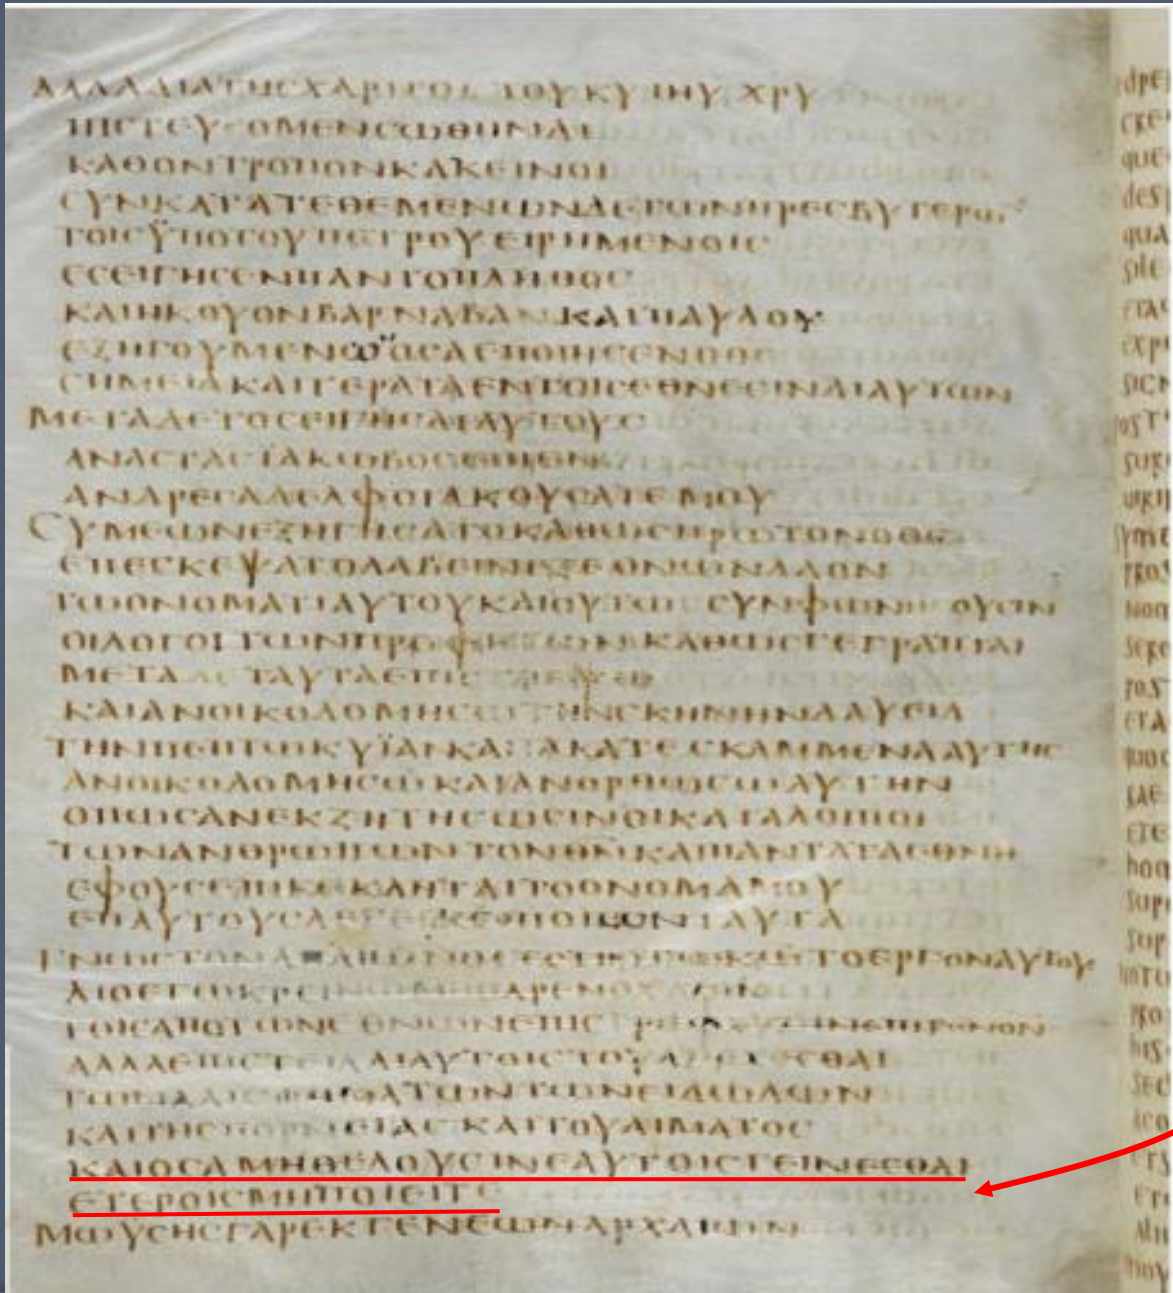 ΑΛΛΑΔΙΑΤΗСΧΑΡΙΤΟС ΤΟΥΚΥ ΙΗΥ ΧΡΥ
ΠΙСΤΕΥΟΜΕΝСΩΘΗΝΑΙ
ΚΑΘΟΝΤΡΟΠΟΝΚΑΚΕΙΝΟΙ
СΥΝΚΑΤΑΤΕΘΕΜΕΝΩΝΔΕΤΩΝΠΡΕСΒΥΤΕΡΩ
ΤΟΙСΫΠΟΤΟΥΠΕΤΡΟΥΕΙΡΗΜΕΝΟΙС
ΕСΕΙΓΗСΕΝΠΑΝΤΟΠΛΗΘΟС
ΚΑΙΗΚΟΥΟΝΒΑΡΝΑΒΑΝ ΚΑΙΠΑΥΛΟΥ
ΕΞΗΓΟΥΜΕΝΩ ΟСΑΕΠΟΙΗСΕΝΟΘС
СΗΜΕΙΑΚΑΙΤΕΡΑΤΑΕΝΤΟΙСΕΘΝΕСΙΝΔΙΑΥΤΩΝ
ΜΕΤΑΔΕΤΟСΕΙΓΗСΑΙΑΥΤΟΥС
ΑΝΑСΤΑСΪΑΚΩΒΟСΕΙΠΕΝ
ΑΝΔΡΕСΑΔΕΛΦΟΙΑΚΟΥСΑΤΕ ΜΟΥ
СΥΜΕΩΝΕΞΗΓΗСΑΤΟΚΑΘΩСΠΡΩΤΟΝΟΘС
ΕΠΕСΚΕΨΑΤΟΛΑΒΕΙΝΕΞΕΘΝΩΝΛΑΟΝ
ΤΩΟΝΟΜΑΤΙΑΥΤΟΥΚΑΙΟΥΤΩС СΥΝΦΩΝΗ ΟΥСΙΝ
ΟΙΛΟΓΟΙ ΤΩΝΠΡΟΦΗΤΩΝ ΚΑΘΩСΓΕΓΡΑΠΤΑΙ
ΜΕΤΑ ΤΑΥΤΑΕΠΙСΤΡΕΨΩ
ΚΑΙΑΝΟΙΚΟΔΟΜΗСΩ ΤΗΝСΚΗΝΗΝΔΑΥΕΙΔ
ΤΗΝΠΕΠΤΩΚΥΪΑΝΚΑ ΤΑΚΑΤΕСΚΑΜΜΕΝΑΑΥΤΗС
ΑΝΟΙΚΟΔΟΜΗСΩ ΚΑΙΑΝΟΡΘΩСΩΑΥΤΗΝ
ΟΠΩСΑΝΕΚΖΗΤΗСΩСΙΝΟΙΚΑΤΑΛΟΙΠΟΙ
ΤΩΝΑΝΘΡΩΠΩΝ ΤΟΝΘΝ ΚΑΙΠΑΝΤΑΤΑΕΘΝΗ
ΕΦΟΥСΕΠΙΚΕΚΛΗΤΑΙΤΟΟΝΟΜΑΜΟΥ
ΕΠΑΥΤΟΥСΛΕΓΕΙ ΚС ΠΟΙΩΝ ΤΑΥΤΑ
ΓΝΩСΤΟΝΑΠ ΑΙΩΝΟСΕСΤΙΝΤΩΚΩΤΟΕΡΓΟΝΑΥΤΟΥ
ΔΙΟΕΓΩΚΡΕΙΝΩΜΗΠΑΡΕΝΟΧΛΕΙΝ
ΤΟΙСΑΠΟΤΩΝΕΘΝΩΝΕΠΙСΤΡΕΦΟΥСΙΝΕΠΙΤΟΝΘΝ
ΑΛΛΑΕΠΙСΤΕΙΛΑΙΑΥΤΟΙСΤΟΥΑΠΕΧΕСΘΑΙ
ΤΩΝΑΛΙСΓΗΜΑΤΩΝ ΤΩΝΕΙΔΩΛΩΝ
ΚΑΙΤΗСΠΟΡΝΕΙΑС ΚΑΙΤΟΥΑΙΜΑΤΟС
ΚΑΙΟСΑ ΜΗΘΕΛΟΥСΙΝΕΑΥΤΟΙСΓΕΙΝΕСΘΑΙ
ΕΤΕΡΟΙСΜΗΠΟΙΕΙΤΕ
ΜΩΥСΗСΓΑΡΕΚ ΓΕΝΕΩΝΑΡΧΑΙΩΝ